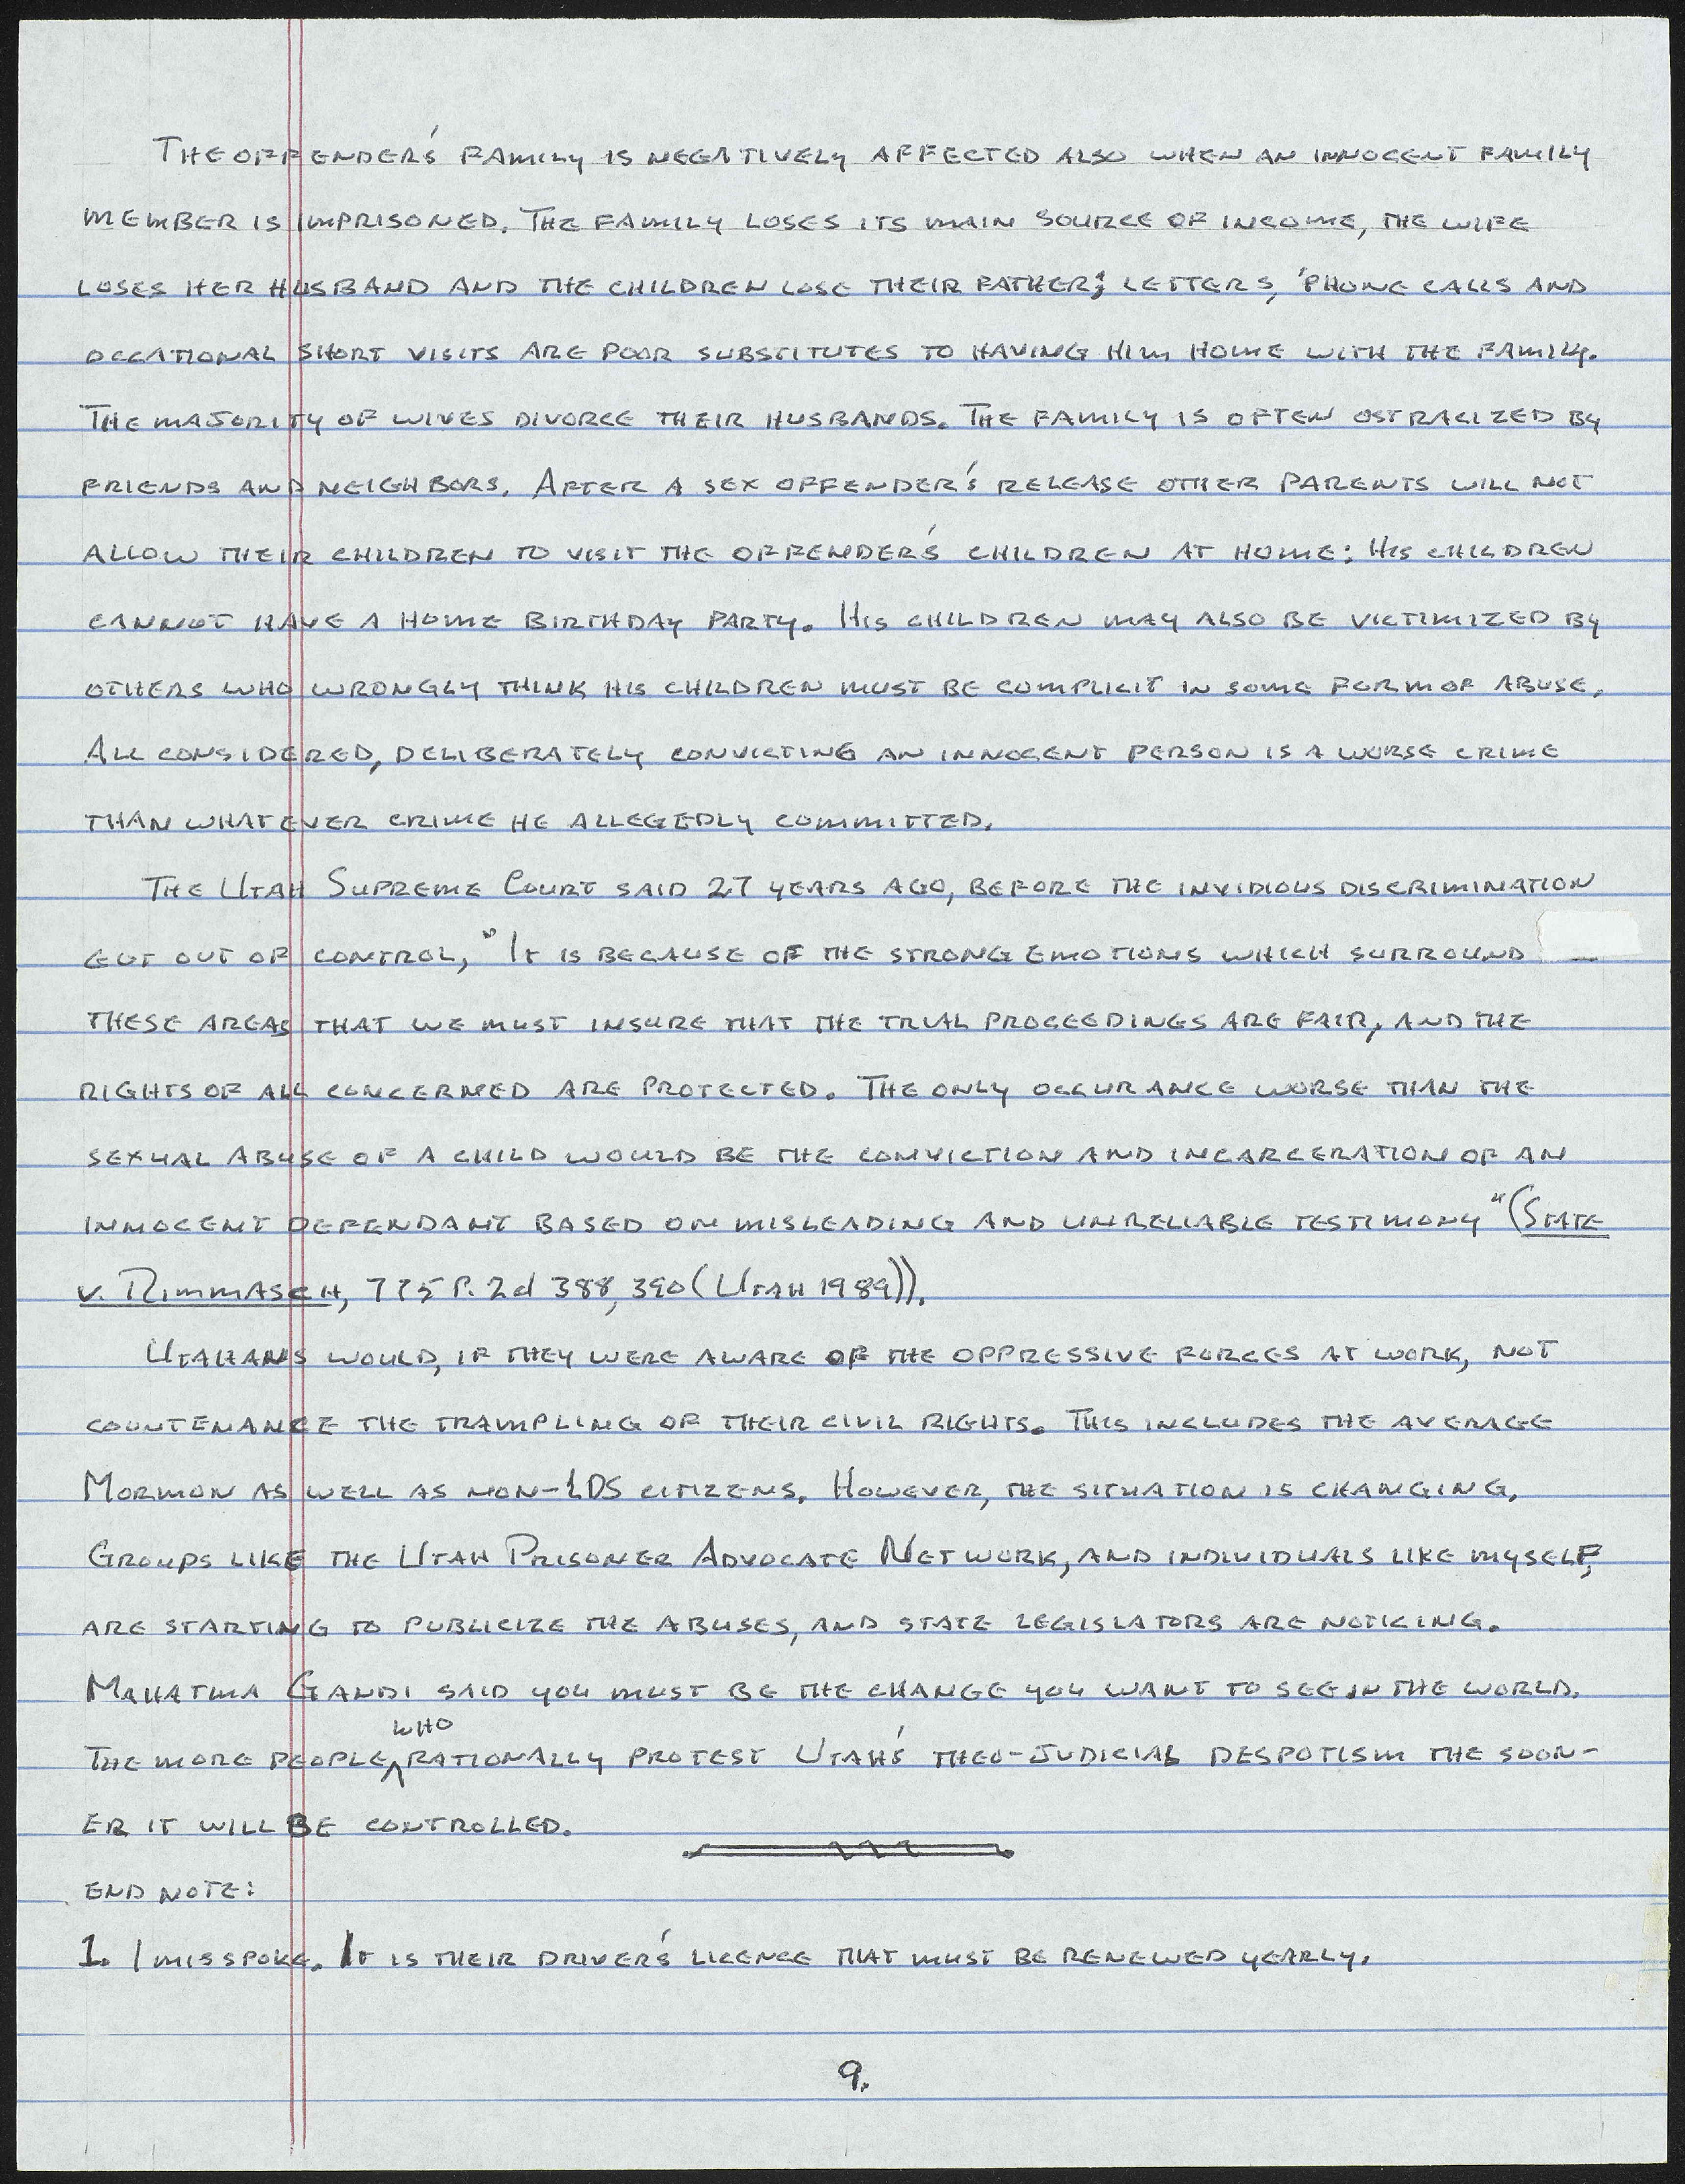 The offender's family is negatively affected also when an innocent family
member is imprisoned. The family loses its main source of income, the wife
loses her husband and the children lose their father; letters, 'phone calls and
occational short visits are poor substitutes to having him home with the family.
The majority of wives divorce their husbands. The family is often ostracized by
friends and neighbors. After a sex offender's release other parents will not
allow their children to visit the offender's children at home: His children
cannot have a home birthday party. His children may also be victimized by
others who wrongly think his children must be complicit in some form of abuse.
All considered, deliberately convicting an innocent person is a worse crime
than whatever crime he allegedly committed.
The Utah Supreme Court said 27 years ago, before the invidious discrimination
got out of control, "It is because of the strong emotions which surround
these areas that we must insure that the trial proceedings are fair, and the
rights of all concerned are protected. The only occurance worse than the
sexual abuse of a child would be the conviction and incarceration of an
innocent defendant based on misleading and unreliable testimony" (State
v. Rimmasch, 775 P. 2d 388, 390 (Utah 1989)).
Utahans would, if they were aware of the oppressive forces at work, not
countenance the trampling of their civil rights. This includes the average
Mormon as well as non-LDS citizens. However, the situation is changing.
Groups like the Utah Prisoner Advocate Network, and individuals like myself,
are starting to publicize the abuses, and state legislators are noticing.
Mahatma Gandi said you must be the change you want to see in the world.
The more people who rationally protest Utah's theo-judicial despotism the soon-
er it will be controlled.
End note:
1. I misspoke. It is their driver's licence that must be renewed yearly.
9.